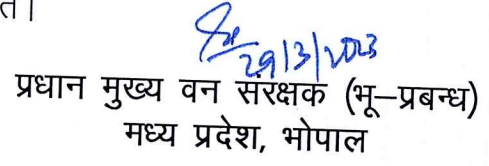 त।
29/3/2023
प्रधान मुख्य वन संरक्षक (भू–प्रबन्ध)
मध्य प्रदेश, भोपाल